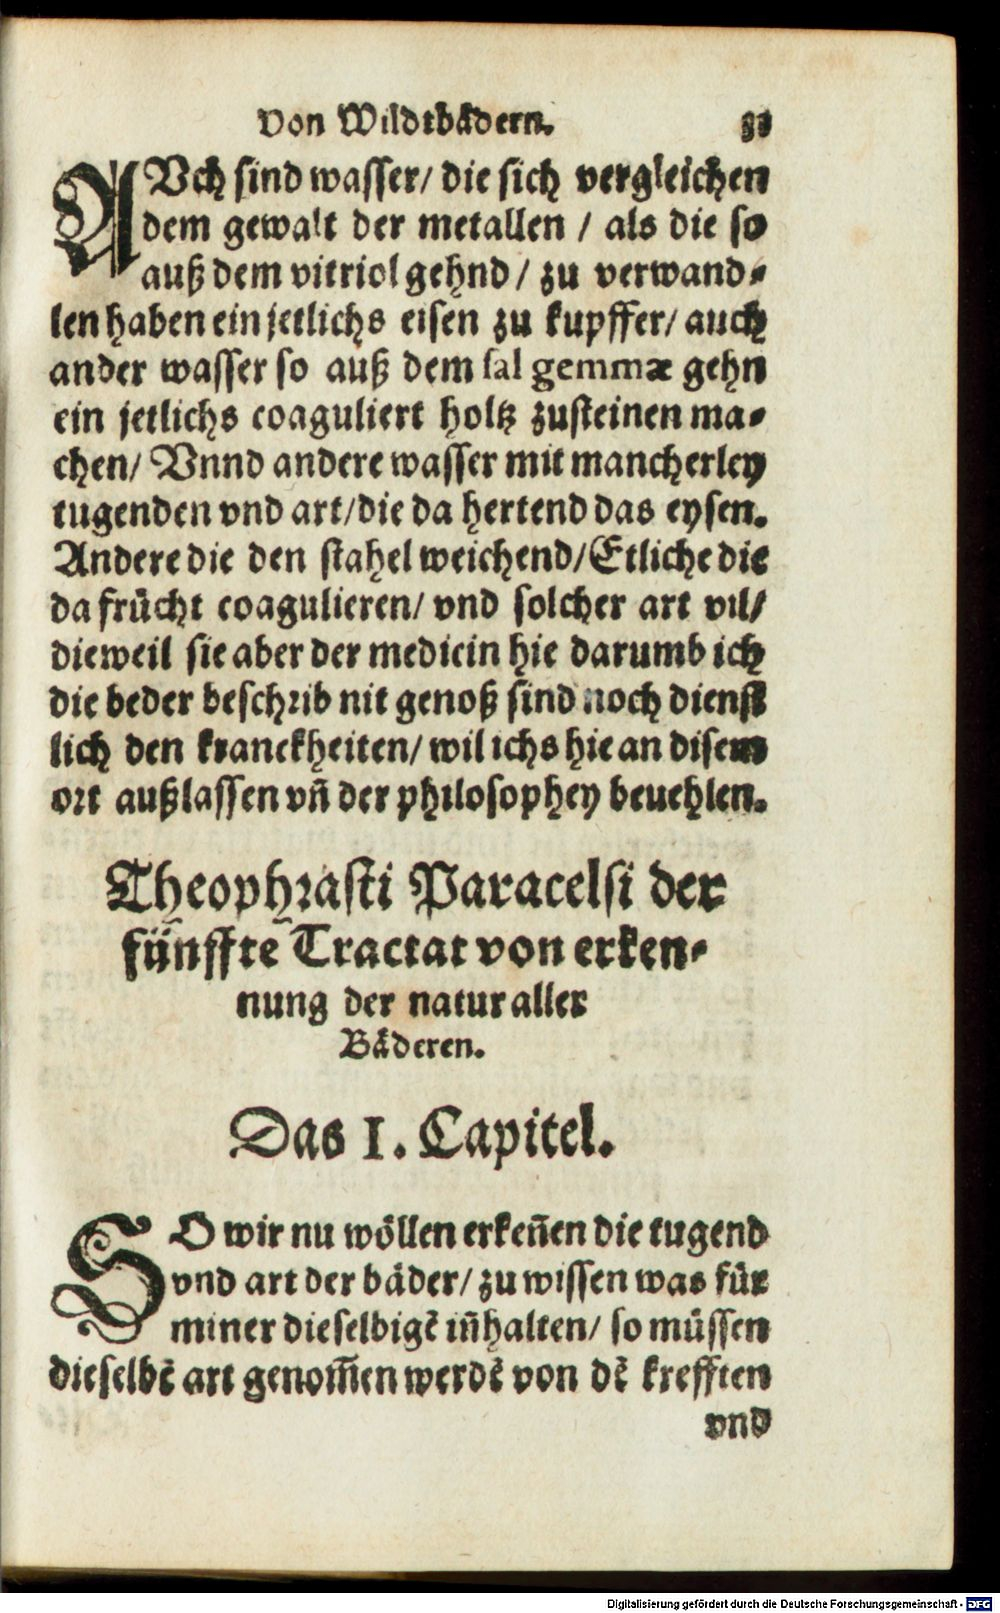 Von Wildtbådern. 31
AVch sind wasser/ die sich vergleichen
dem gewalt der metallen / als die so
auß dem vitriol gehnd / zu verwand-
len haben ein jetlichs eisen zu kupffer/ auch
ander wasser so auß dem sal gemmæ gehn
ein jetlichs coaguliert holtz zusteinen ma-
chen/ Vnnd andere wasser mit mancherley
tugenden vnd art/die da hertend das eysen.
Andere die den stahel weichend/Etliche die
da frücht coagulieren/ vnd solcher art vil/
dieweil sie aber der medicin hie darumb ich
die beder beschrib nit genoß sind noch dienst
lich den kranckheiten/ wil ichs hie an disem
ort außlassen vñ der philosophey beuehlen.
Theophrasti Paracelsi der
fünffte Tractat von erken-
nung der natur aller
Båderen.
Das I. Capitel.
SO wir nu wöllen erkeñen die tugend
vnd art der båder/ zu wissen was für
miner dieselbigẽ iñhalten/ so müssen
dieselbẽ art genom̃en werdẽ von dẽ krefften
vnd
Digitalisierung gefördert durch die Deutsche Forschungsgemeinschaft - DFG